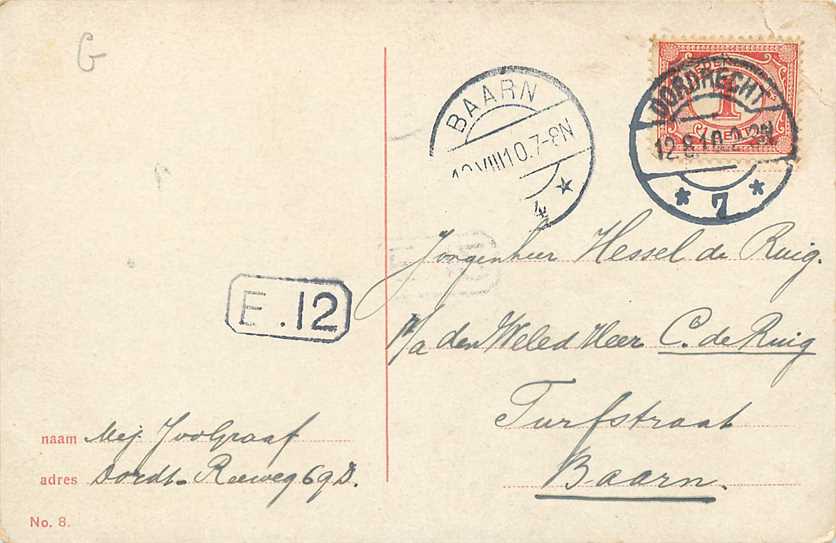 G
BAARN
12.VIII10.7-8N
4
DORDRECHT
12.8.10.2-3N
7
1
E.12
Jongenheer Hessel de Ruig.
p/a den WelEd Heer C. de Ruig
Turfstraat
Baarn.
naam Mej.
adres Dordt. Reeweg 69
No. 8.